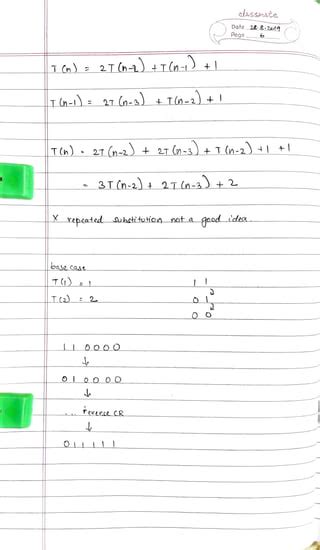 classmate
Date 28.8.2019
Page 6
T(n) = 2T(n-2) + T(n-1) + 1
T(n-1) = 2T(n-3) + T(n-2) + 1
T(n) = 2T(n-2) + 2T(n-3) + T(n-2) + 1 + 1
= 3T(n-2) + 2T(n-3) + 2
x repeated substitution not a good idea.
base case
T(1) = 1
1 1
T(2) = 2
0 1 2
0 0 2
1 1 0 0 0 0
↓
0 1 0 0 0 0
↓
... reverse CR
↓
0 1 1 1 1 1